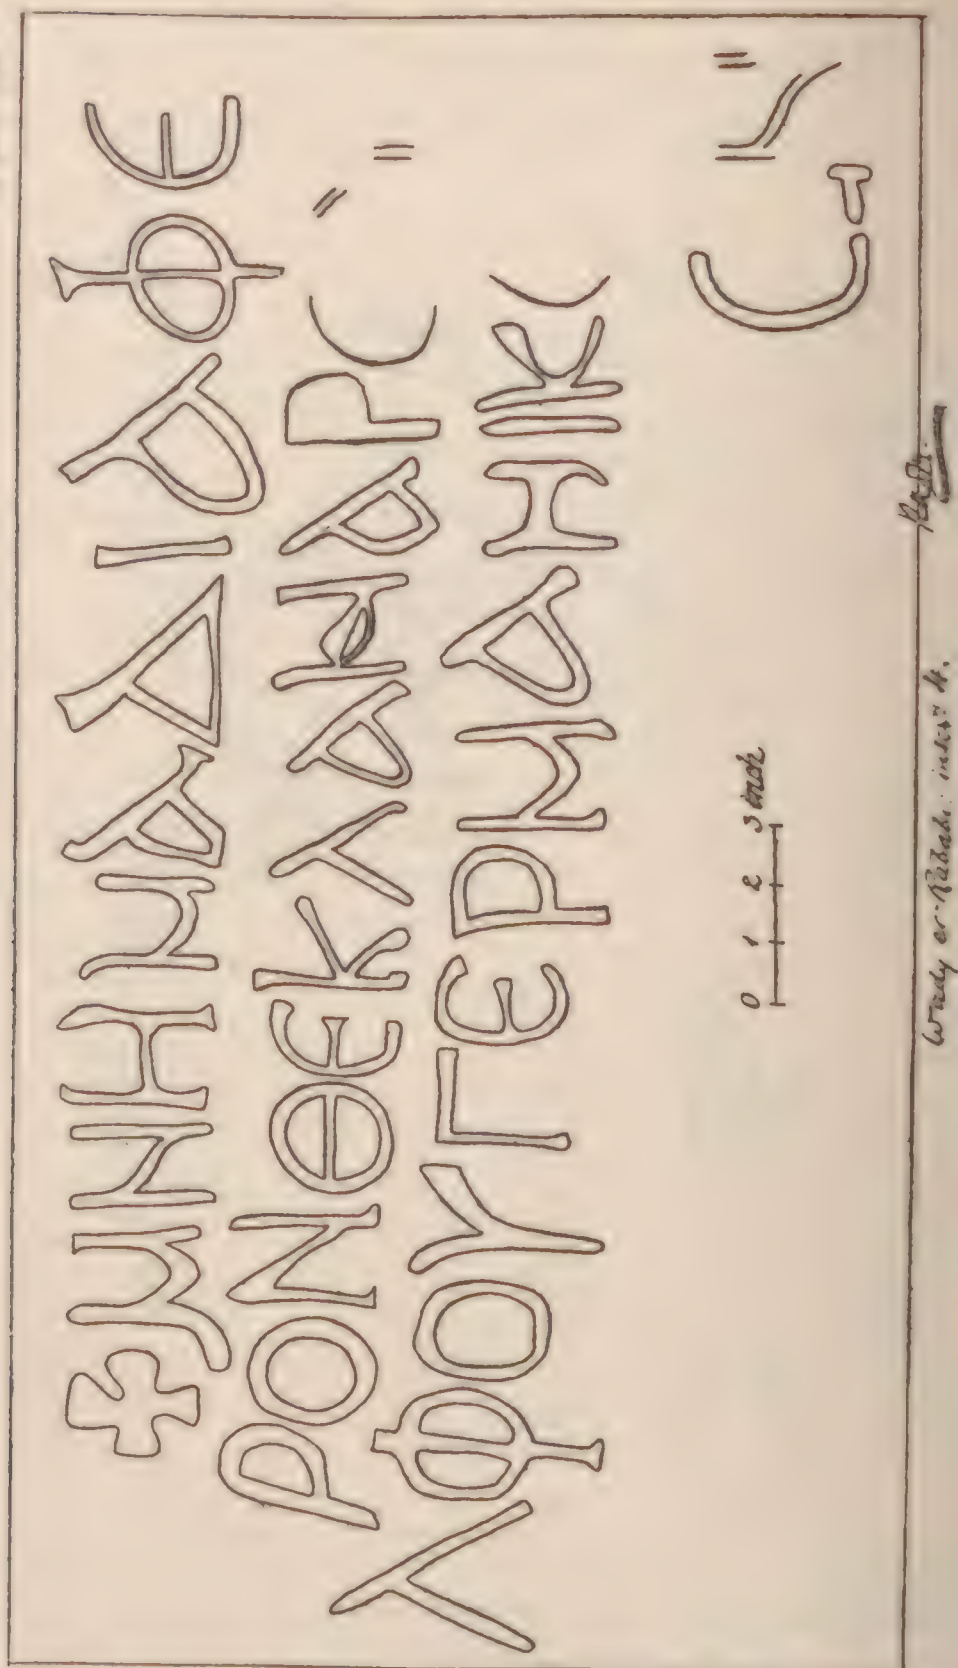 ✝ΜΝΗΜΑΔΙΑΦΕ
ΡΟΝΘΕΚΛΑΜΑΡC
ΛΦΟΥΓΕΡΜΑΗΙΚC
C
0 1 2 3 inch
Wady er-Rababi: inscrn 4.